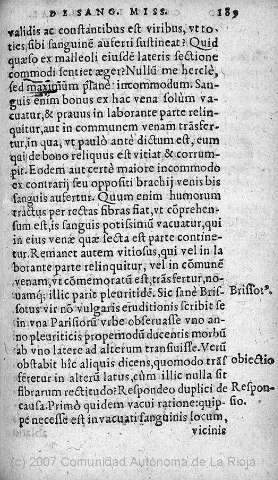 DE SANG. MISS. 189
validis ac constantibus est viribus, vt to-
ties sibi sanguinẽ auferri sustineat? Quid
quæso ex malleoli eiusdẽ lateris sectione
commodi sentiet æger? Nullũ me herclè,
sed maximũm planè incommodum. San-
guis enim bonus ex hac vena solùm va-
cuatur, & prauus in laborante parte relin-
quitur, aut in communem venam trãsfer-
tur, in qua, vt paulò ante dictum est, eum
qui de bono reliquus est vitiat & corrum-
pit. Eodem aut certè maiore incommodo
ex contrarij seu oppositi brachij venis bis
sanguis aufertur. Quum enim humorum
tractus per rectas fibras fiat, vt cõprehen-
sum est, is sanguis potissimũ vacuatur, qui
in eius venæ quæ secta est parte contine-
tur. Remanet autem vitiosus, qui vel in la
borante parte relinquitur, vel in cõmunẽ
venam, vt cõmemoratũ est, trãsfertur, no-
uamq; illic parit pleuritidẽ. Sic sanè Bris-
sotus vir nõ vulgaris eruditionis scribit se
in vna Parisiorũ vrbe obseruasse vno an-
no pleuriticis propemodũ ducentis morbũ
ab vno latere ad alterum transiuisse. Verũ
obstabit hîc aliquis dicens, quomodo trãs
feretur in alterũ latus, cùm illic nulla sit
fibrarum rectitudo? Respondeo duplici de
causa. Primò quidem vacui ratione: quip-
pe necesse est in vacuati sanguinis locum,
vicinis
Brissotꝰ.
obiectio
Respon-
sio.
(c) 2007 Comunidad Autónoma de La Rioja